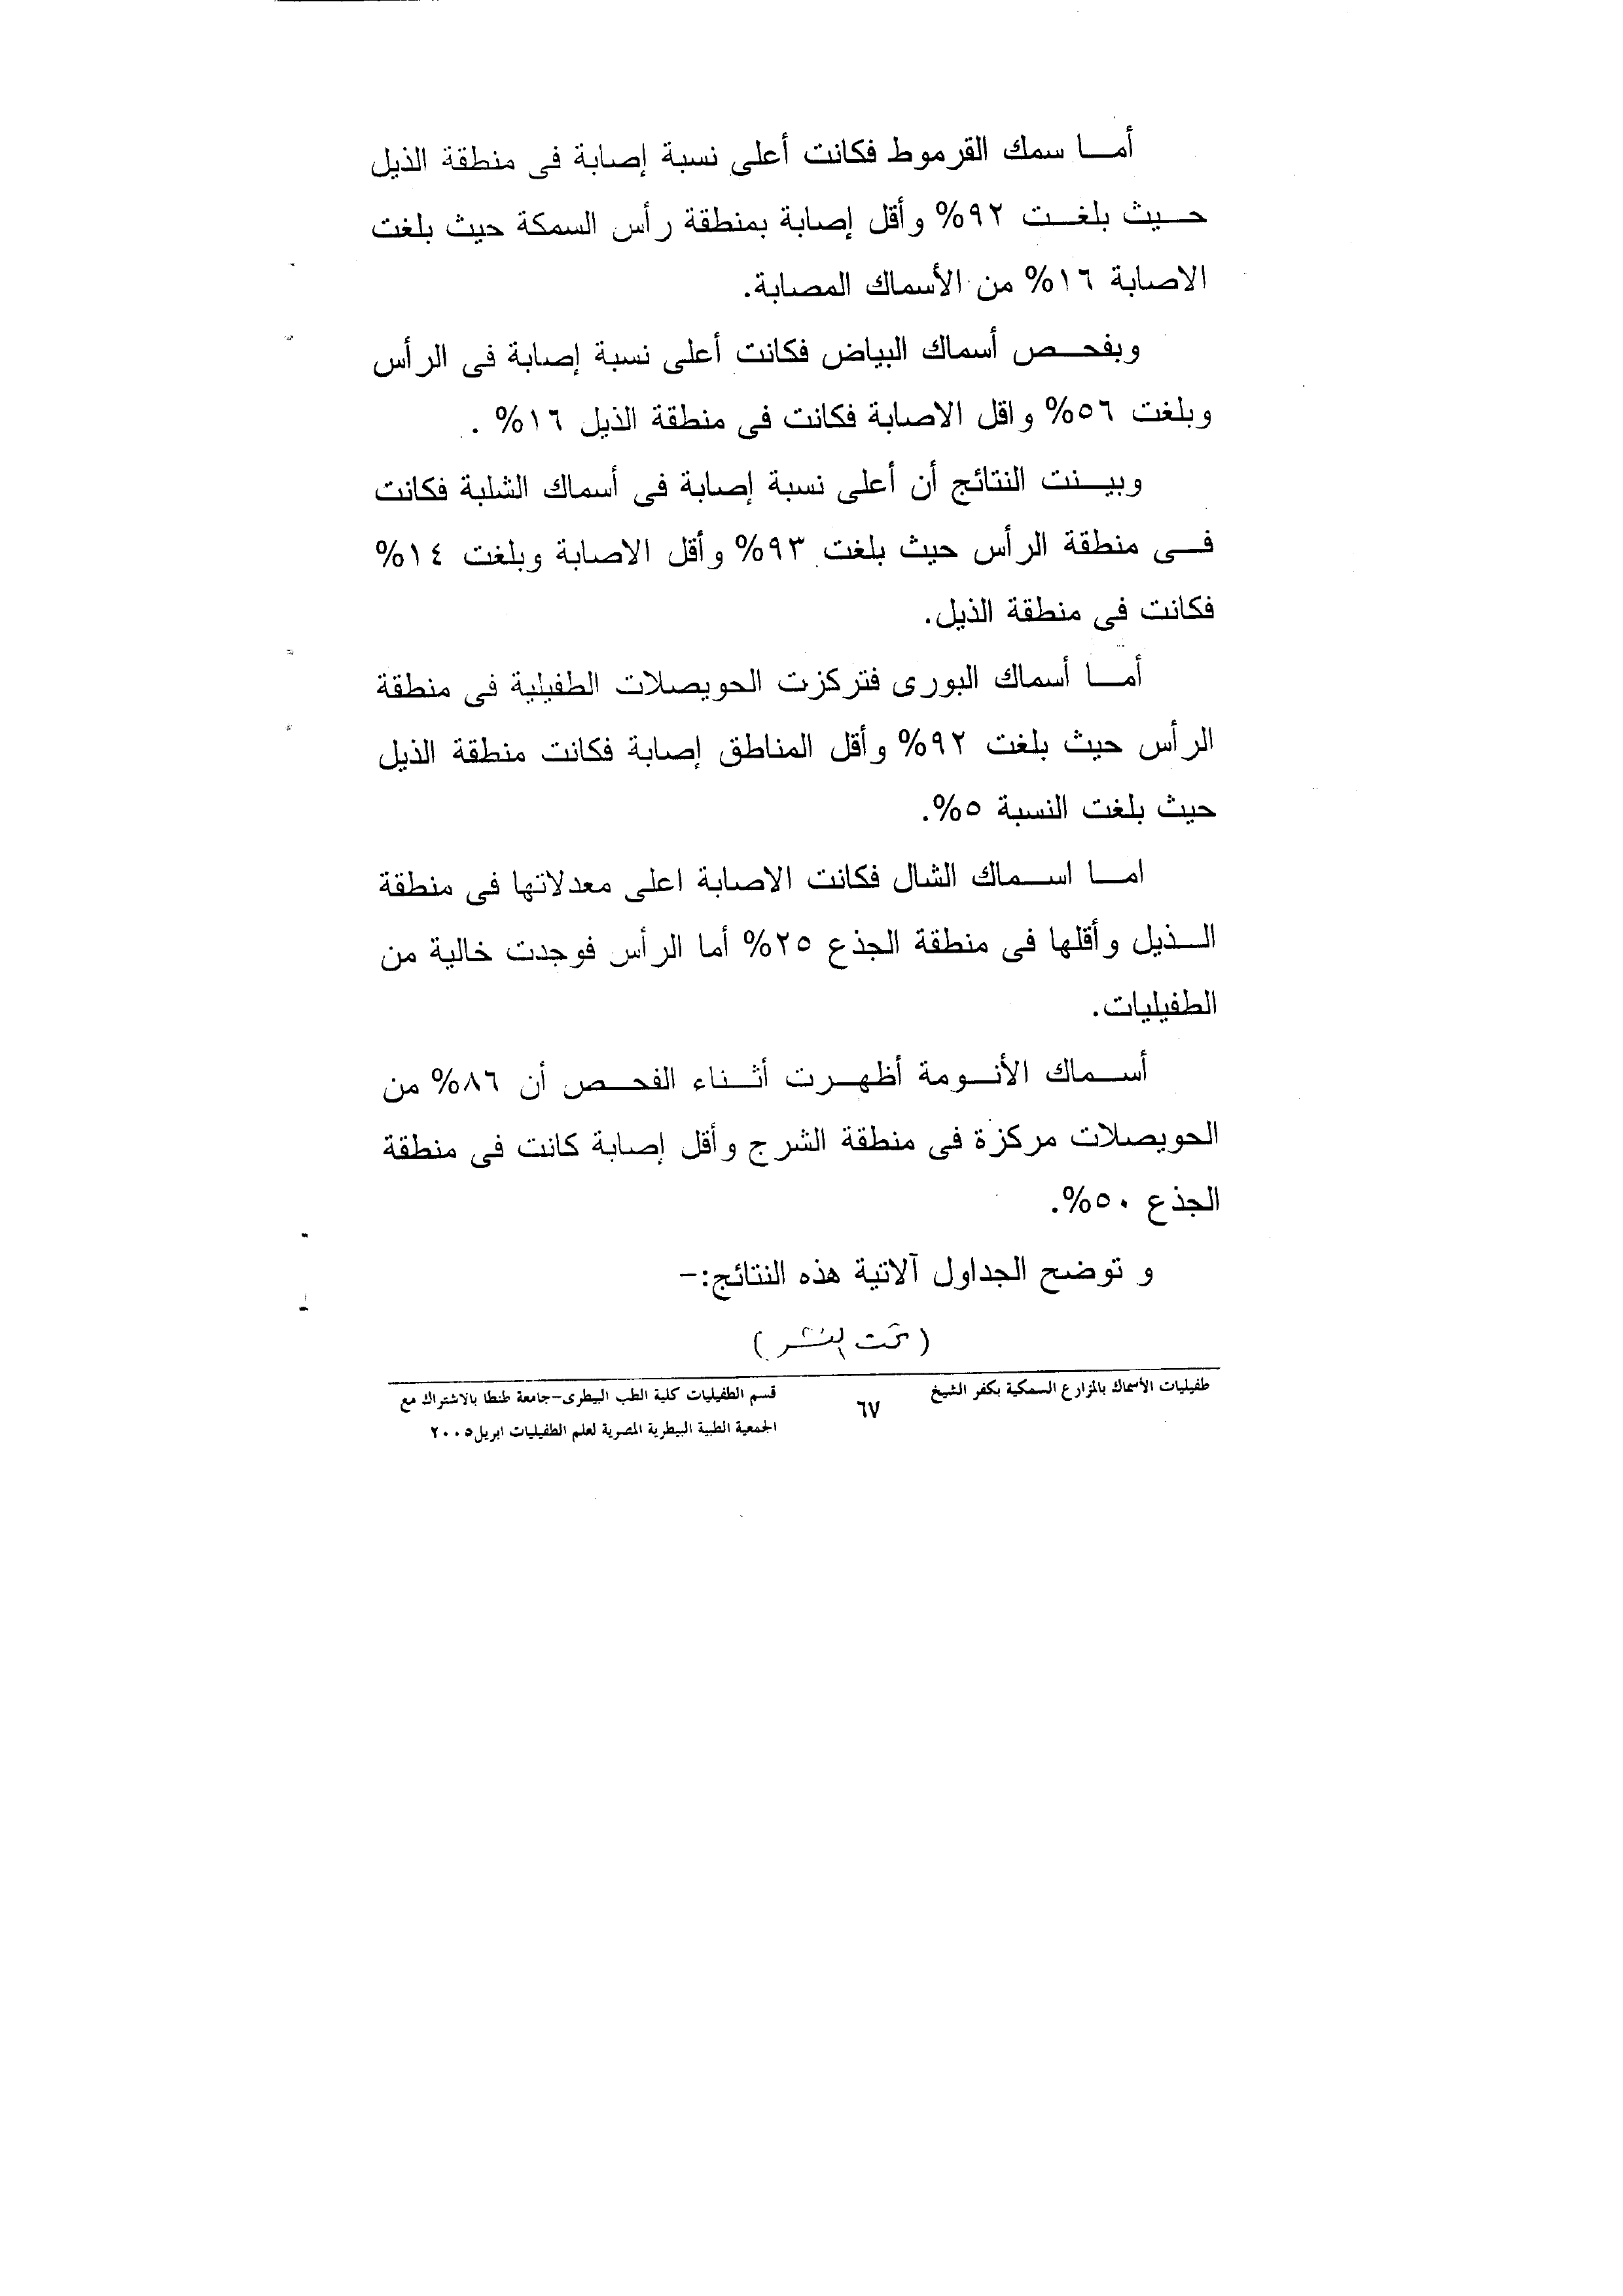 أما سمك القرموط فكانت أعلى نسبة إصابة فى منطقة الذيل
حيث بلغت ٩٢% وأقل إصابة بمنطقة رأس السمكة حيث بلغت
الاصابة ١٦% من الأسماك المصابة.
وبفحص أسماك البياض فكانت أعلى نسبة إصابة فى الرأس
وبلغت ٥٦% واقل الاصابة فكانت فى منطقة الذيل ١٦% .
وبينت النتائج أن أعلى نسبة إصابة فى أسماك الشلبة فكانت
فى منطقة الرأس حيث بلغت ٩٣% وأقل الاصابة وبلغت ١٤%
فكانت فى منطقة الذيل.
أما أسماك البورى فتركزت الحويصلات الطفيلية فى منطقة
الرأس حيث بلغت ٩٢% وأقل المناطق إصابة فكانت منطقة الذيل
حيث بلغت النسبة ٥%.
اما اسماك الشال فكانت الاصابة اعلى معدلاتها فى منطقة
الذيل وأقلها فى منطقة الجذع ٢٥% أما الرأس فوجدت خالية من
الطفيليات.
أسماك الأنومة أظهرت أثناء الفحص أن ٨٦% من
الحويصلات مركزة فى منطقة الشرج وأقل إصابة كانت فى منطقة
الجذع ٥٠%.
و توضح الجداول آلاتية هذه النتائج:-
(تحت النشر)
طفيليات الأسماك بالمزارع السمكية بكفر الشيخ
٦٧
قسم الطفيليات كلية الطب البيطرى-جامعة طنطا بالاشتراك مع
الجمعية الطبية البيطرية المصرية لعلم الطفيليات ابريل٢٠٠٥